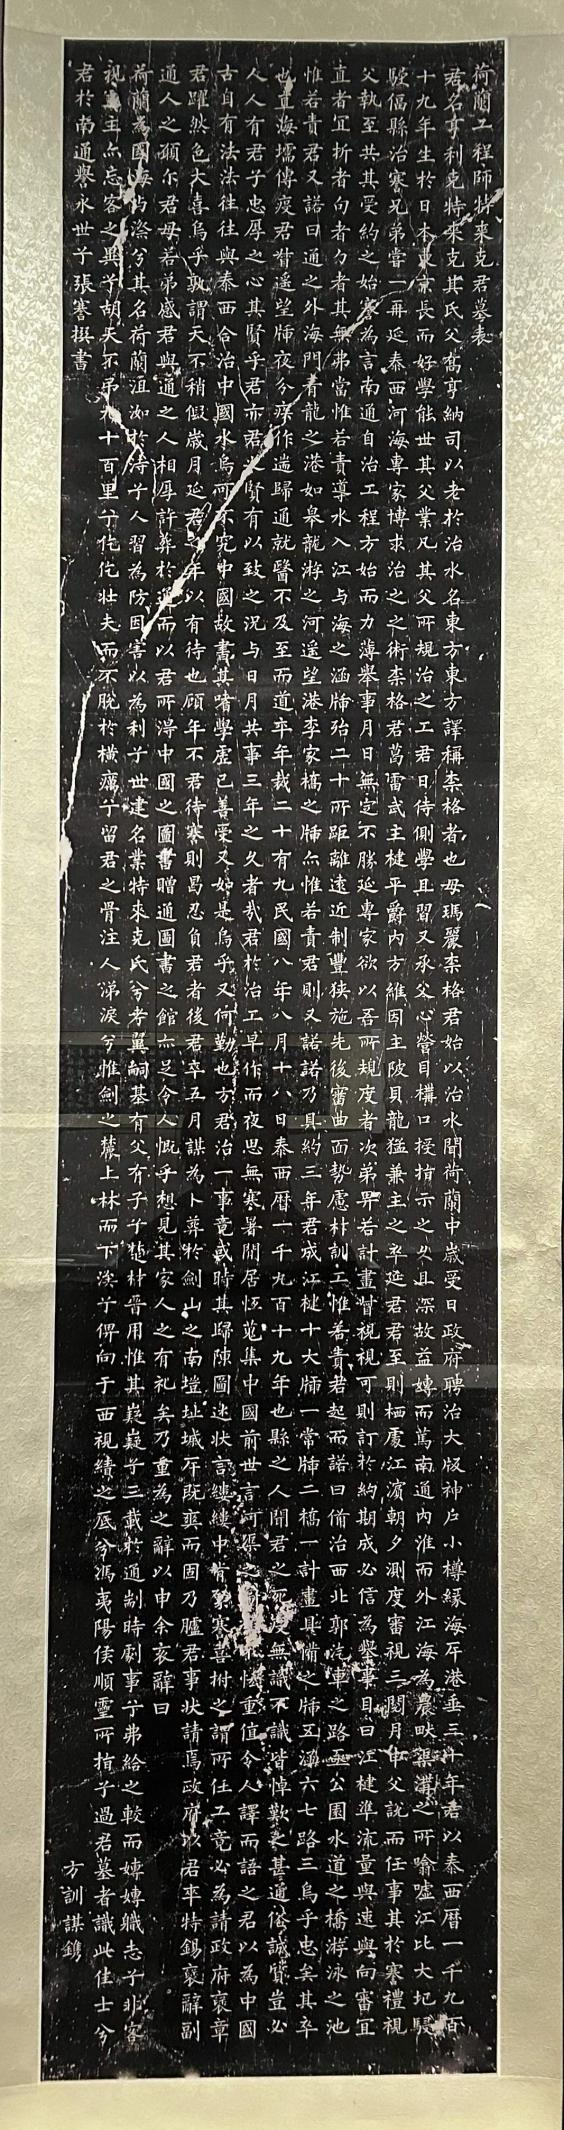 荷蘭工程師特來克君墓表
君名亨利克特來克其氏父奢亨納司以老於治水名東方東方譯稱柰格者也母瑪麗柰格君始以治水聞荷蘭中歲受日政府聘治大阪神戶小樽緣海厈港垂三十年君以泰西曆一千九百
十九年生於日本東京長而好學能世其父業凡其父所規治之工君日侍側學且習又承父心營目構口授指示之久且深故益媾而篤南通內淮而外江海為農畎渠溝之所喻噓江比大圮駸
駸偪縣治謇兄弟嘗一再延泰西河海專家博求治之之術柰格君葛雷武主楗平爵內方維因主陂貝龍猛兼主之卒延君君至則栖處江濱朝夕測度審視三閱月申父說而任事其於謇禮視
父執至共其受約之始謇為言南通自治工程方始而力薄舉事月日無定不勝延專家欲以吾所規度者次弟畀若計畫嘗視視可則訂於約期成必信為舉事目曰江楗準流量與速與向審宜
直者宜折者向者力者其無弗當惟若責導水入江与海之涵牐殆二十所距離遠近制豐狹施先後審曲面勢慮材訓工惟若責君起而諾曰備治西北郭汽車之路亟公園水道之橋游泳之池
惟若責君又諾曰通之外海門青龍之港如皋龍游之河遙望港李家橋之牐亦惟若責君則又諾諾乃具約三年君成江楗十大牐一常牐二橋一計畫具備之牐五涵六七路三烏乎忠矣其卒
也直海壖傳疫君督遙望牐夜分瘵作遄歸通就醫不及至而道卒年裁二十有九民國八年八月十八日泰西曆一千九百十九年也縣之人聞君之死受無識不識皆悼歎之甚通俗誠質豈必
人人有君子忠厚之心其賢乎君亦君之賢有以致之況与日月共事三年之久者哉君於治工早作而夜思無寒暑閒居恆蒐集中國前世言河渠之懷重值令人譯而語之君以為中國
古自有法法往往與泰西合治中國水烏可不究中國故書其嗜學虛己善受又如是烏乎又何勤也方君治一事竟或時其歸陳圖述狀言縷縷中肯謇喜拊之謂所任工竟必為請政府褒章
君躍然色大喜烏乎孰謂天不稍假歲月延君之年以有待也顧年不君待謇則曷忍負君者後君卒五月謀為卜葬於劍山之南塏址墄厈既爽而固乃臚君事狀請焉政府以君率特錫褒辭副
通人之願尒君母若弟感君與通之人相厚許葬於通而以君所得中國之圖書贈通圖書之館亦足令人慨乎想見其家人之有祀矣乃重為之辭以申余哀辭曰
荷蘭為國海与滌兮其名荷蘭洹洳於濤兮人習為防因害以為利兮世建名業特來克氏兮考翼嗣基有父有子兮楚材晉用惟其嶷嶷兮三載於通制時劇事兮弗給之較而媾媾職志兮非客
視主亦忘客之異兮胡天不弔九十百里兮仡仡壯夫而不脫於橫癘兮留君之骨注人涕淚兮惟劍之麓上林而下涘兮俾向于西視績之厎兮馮夷陽侯順靈所指兮過君墓者識此佳士兮
君於南通譽永世兮張謇撰書
方訓謀鐫